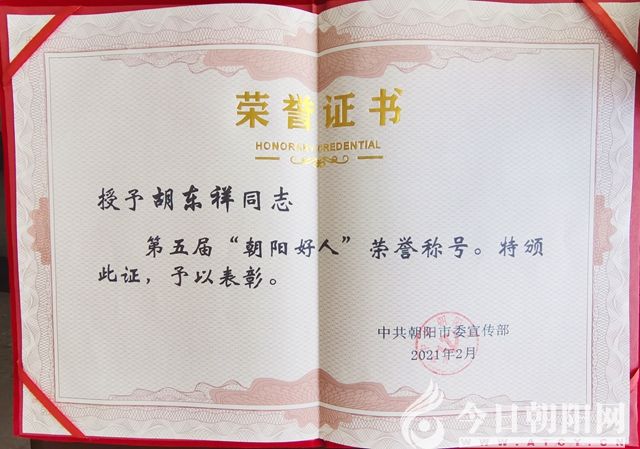 荣誉证书
HONORARY CREDENTIAL
授予胡东祥同志
第五届“朝阳好人”荣誉称号。特颁
此证，予以表彰。
中共朝阳市委宣传部
2021年2月
今日朝阳网
WWW.AICY.CN